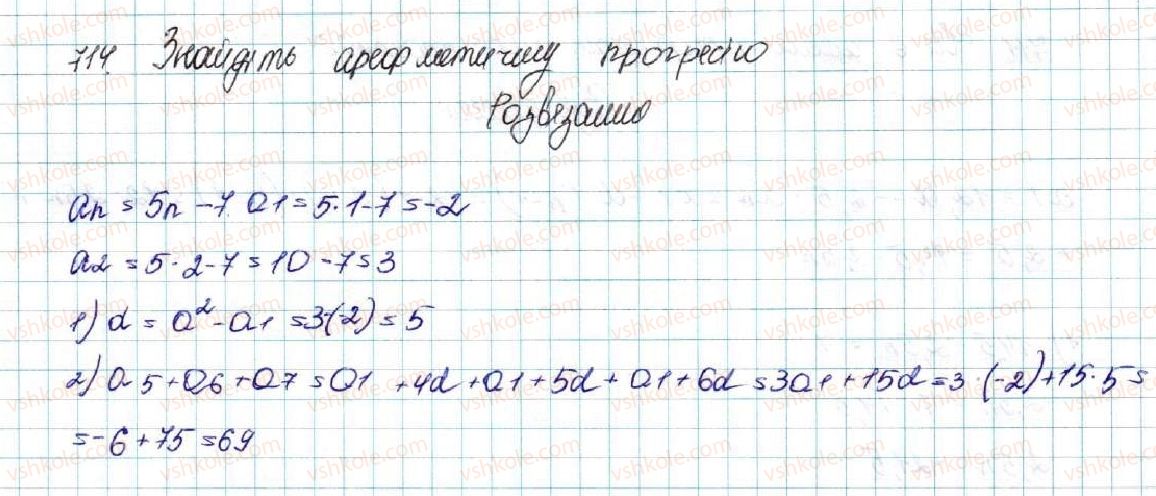 714. Знайдіть ареорметичну прогресію
Розвезання
an = 5n - 7. a1 = 5·1-7 = -2
a2 = 5·2-7 = 10-7=3
1) d = a² - a1 = 3-(-2) = 5
2) a5+a6+a7 = a1+4d+a1+5d+a1+6d = 3a1+15d = 3·(-2)+15·5=
=-6+75=69